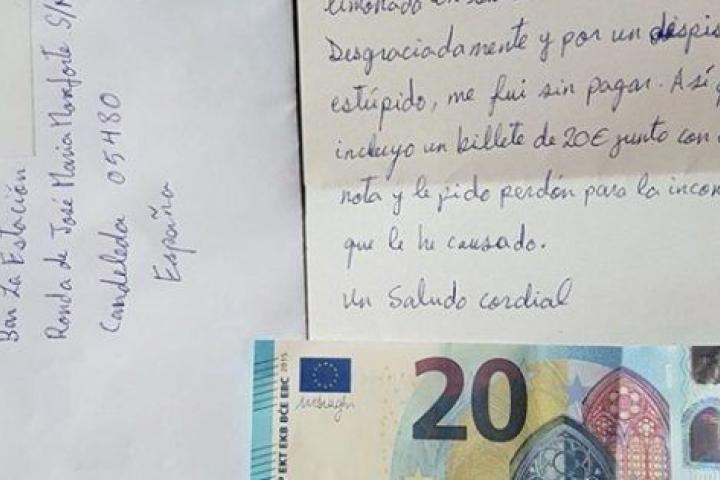 Bar La Estación
Ronda de José María Monforte S/N
Candeleda 05480
España
limonada en
Desgraciadamente y por un despis
estúpido, me fui sin pagar. Así
incluyo un billete de 20€ junto con
nota y le pido perdón para la incon
que le he causado.
Un Saludo cordial
EKT EKB BCE EBC 2015
20